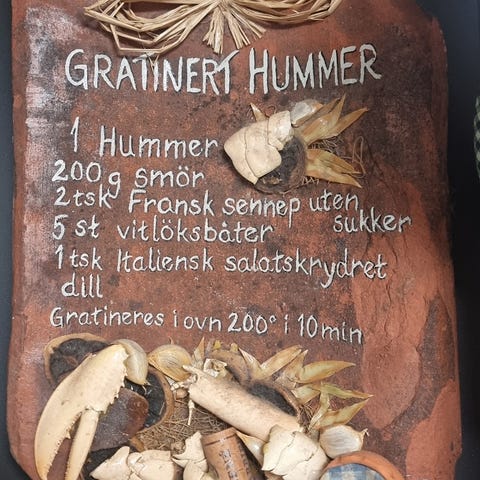 GRATINERT HUMMER
1 Hummer
200g smör
2tsk Fransk sennep uten
sukker
5 st vitlöksbåter
1tsk Italiensk salatskrydret
dill
Gratineres i ovn 200° i 10min